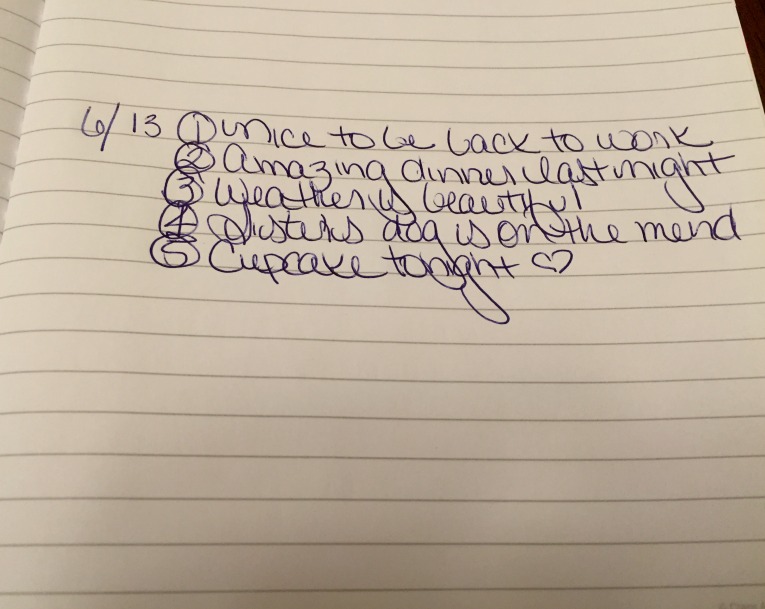 6/13 ① nice to be back to work
② amazing dinner last night
③ Weather is beautiful
④ Sisters dog is on the mend
⑤ Cupcake tonight ♡